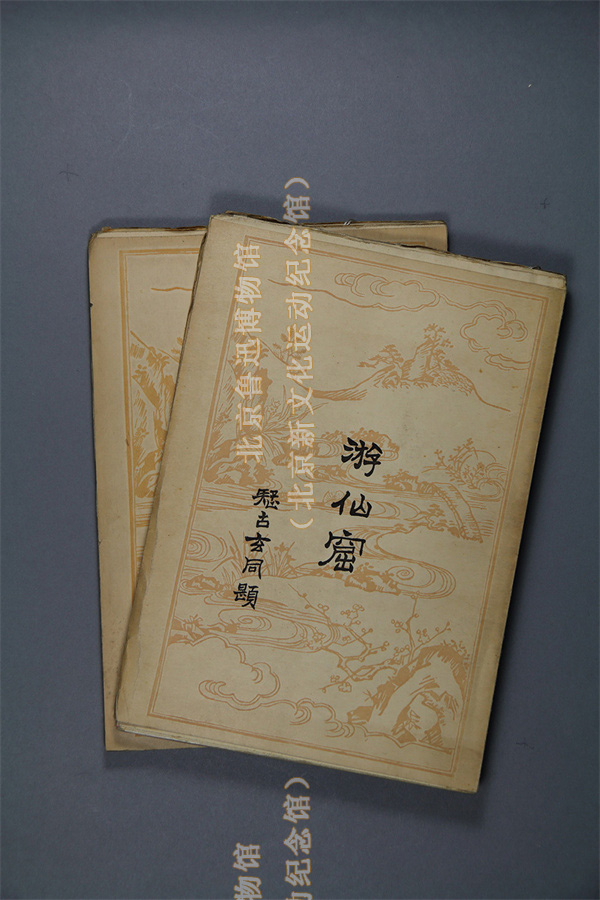 游仙窟
疑古玄同题
北京鲁迅博物馆
（北京新文化运动纪念馆）
物馆
动纪念馆）